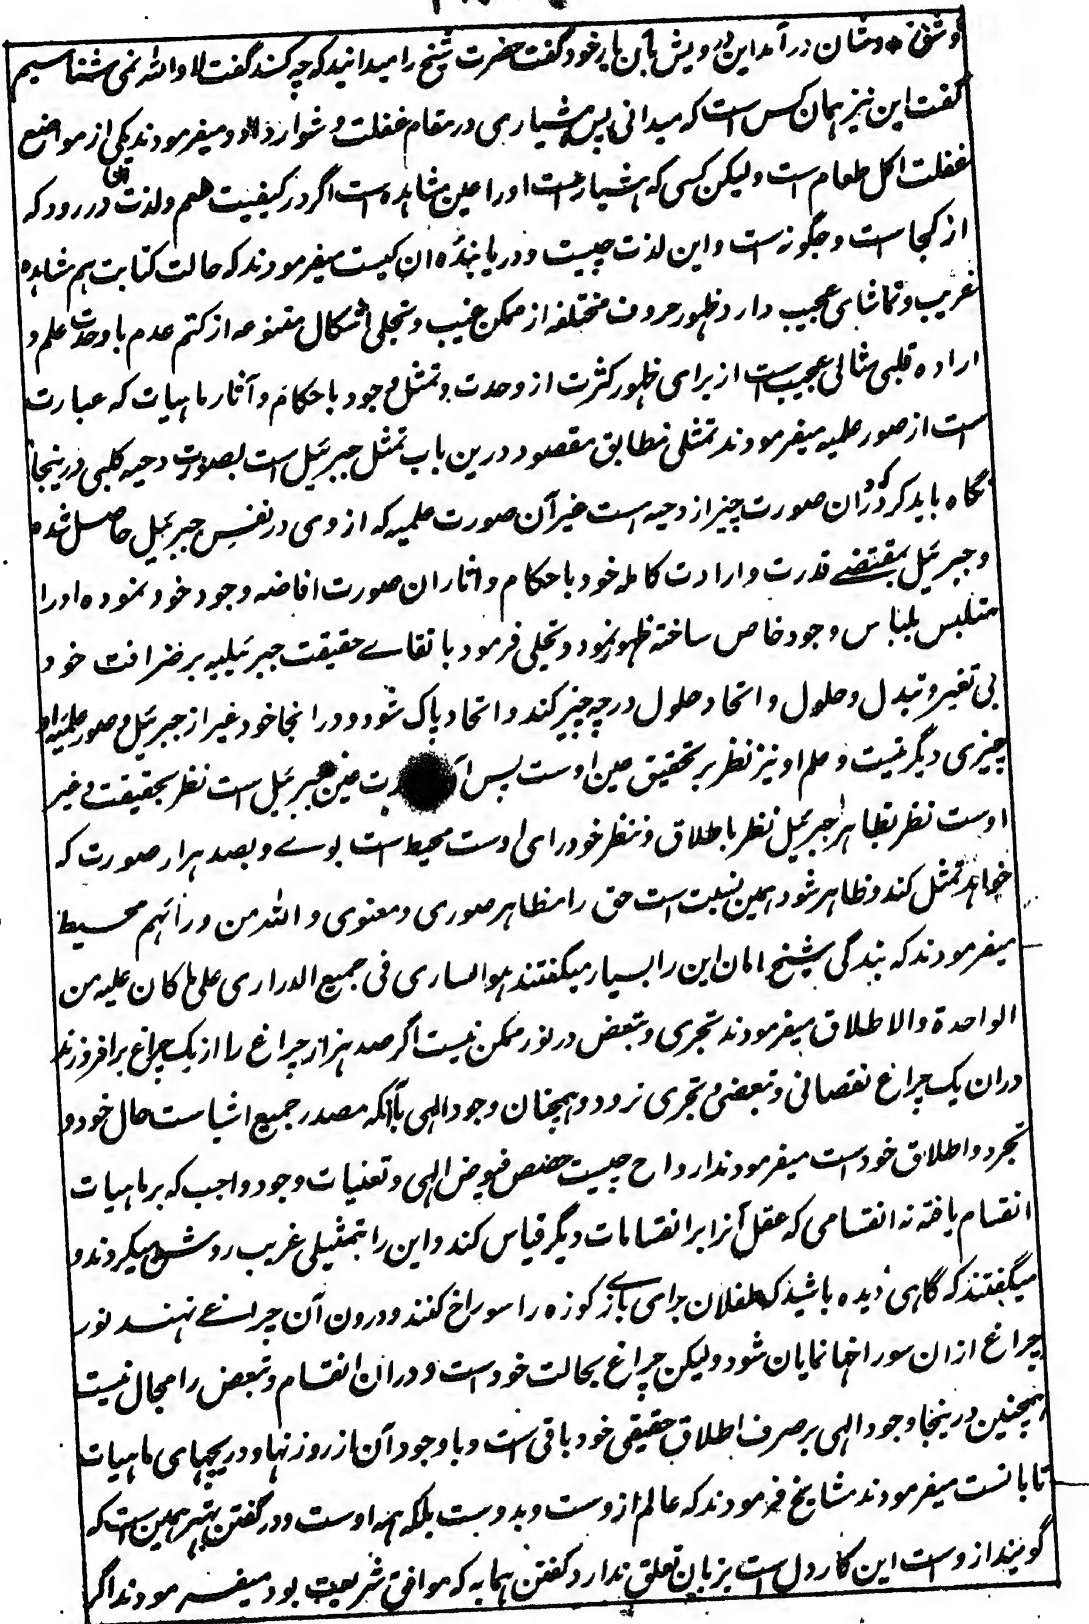 و شق دوشان درآمد این درویش بآن یار خود گفت حضرت شیخ را میدانید که چه کسند گفت لا والله نمی شناسیم
گفت این نیز همان کس است که میدانی پس هشیاری در مقام غفلت دشوار بود و میفرمودند یکی از مواضع
غفلت اکل طعام است ولیکن کسی که هشیار است او را عین مشاهده است اگر در کیفیت طعم و لذت آن در رود که
از کجا است و چگونه است و این لذت چیست و دریابنده ان کیست میفرمودند که حالت کتابت هم مشاهده
غریب و تماشای عجیب دارد ظهور حروف مختلفه از مکمن غیب و تجلی اشکال متنوعه از کتم عدم با وحدت علم و
اراده قلبی مثالی عجیب است از برای ظهور کثرت از وحدت و تمثل وجود با حکام و آثار ماهیات که عبارت
است از صور علمیه میفرمودند تمثلی مطابق مقصود درین باب تمثل جبرئیل است بصورت دحیه کلبی درینجا
نگاه باید کرد که در ان صورت چیز از دحیه است غیر آن صورت علمیه که از وی در نفس جبرئیل حاصل شده
و جبرئیل بمقتضے قدرت و ارادت کامله خود با حکام و اثار ان صورت افاضه وجود خود نموده او را
متلبس بلباس وجود خاص ساخته ظهور نمود و تجلی فرمود با بقاے حقیقت جبرئیلیه بر صرافت خود
بی تغیر و تبدل و حلول و اتحاد حلول در چه چیز کند و اتحاد باک شود و در انجا خود غیر از جبرئیل و صور علمیه او
چیزی دیگر نیست و علم او نیز نظر بر تحقیق عین اوست پس آن صورت عین جبرئیل است نظر بحقیقت و غیر
اوست نظر بظاهر جبرئیل نظر باطلاق و نظر خود رای اوست محیط است بوے و بصد هزار صورت که
خواهد تمثل کند و ظاهر شود همین نسبت است حق را مظاهر صوری و معنوی و الله من ورائهم محیط
میفرمودند که بندگی شیخ امان این را بسیار میگفتند هو الساری فی جمیع الدراری علی ما کان علیه من
الواحدة والاطلاق میفرمودند تجری و تبعض در نور ممکن نیست اگر صد هزار چراغ را از یک چراغ برافروزند
دران یک چراغ نقصانی و تبعضی و تجری نرود و همچنان وجود الهی باآنکه مصدر جمیع اشیا ست حال خود و
تجرد و اطلاق خود است میفرمودند ارواح چیست حصص فیوض الهی و تعنیات وجود واجب که بر ماهیات
انقسام یافته نه انقسامی که عقل آنرا بر انقسامات دیگر قیاس کند و این را بتمثیلی غریب روشن میکردند و
میگفتند که گاهی دیده باشید که طفلان برای بازے کوزه را سوراخ کنند و درون آن چراغے نهند نور
چراغ ازان سوراخها نمایان شود ولیکن چراغ بحالت خود است و دران انقسام و تبعض را مجال نیست
همچنین درینجا وجود الهی بر صرف اطلاق حقیقی خود باقی است و با وجود آن از روزنها و دریچهای ماهیات
تابانست میفرمودند مشایخ فرمودند که عالم از وست و بدوست بلکه همه اوست و در گفتن بهتر همین است که
گویند از وست این کار دل است بزبان تعلق ندارد گفتن همان به که موافق شریعت بود میفرمودند اگر